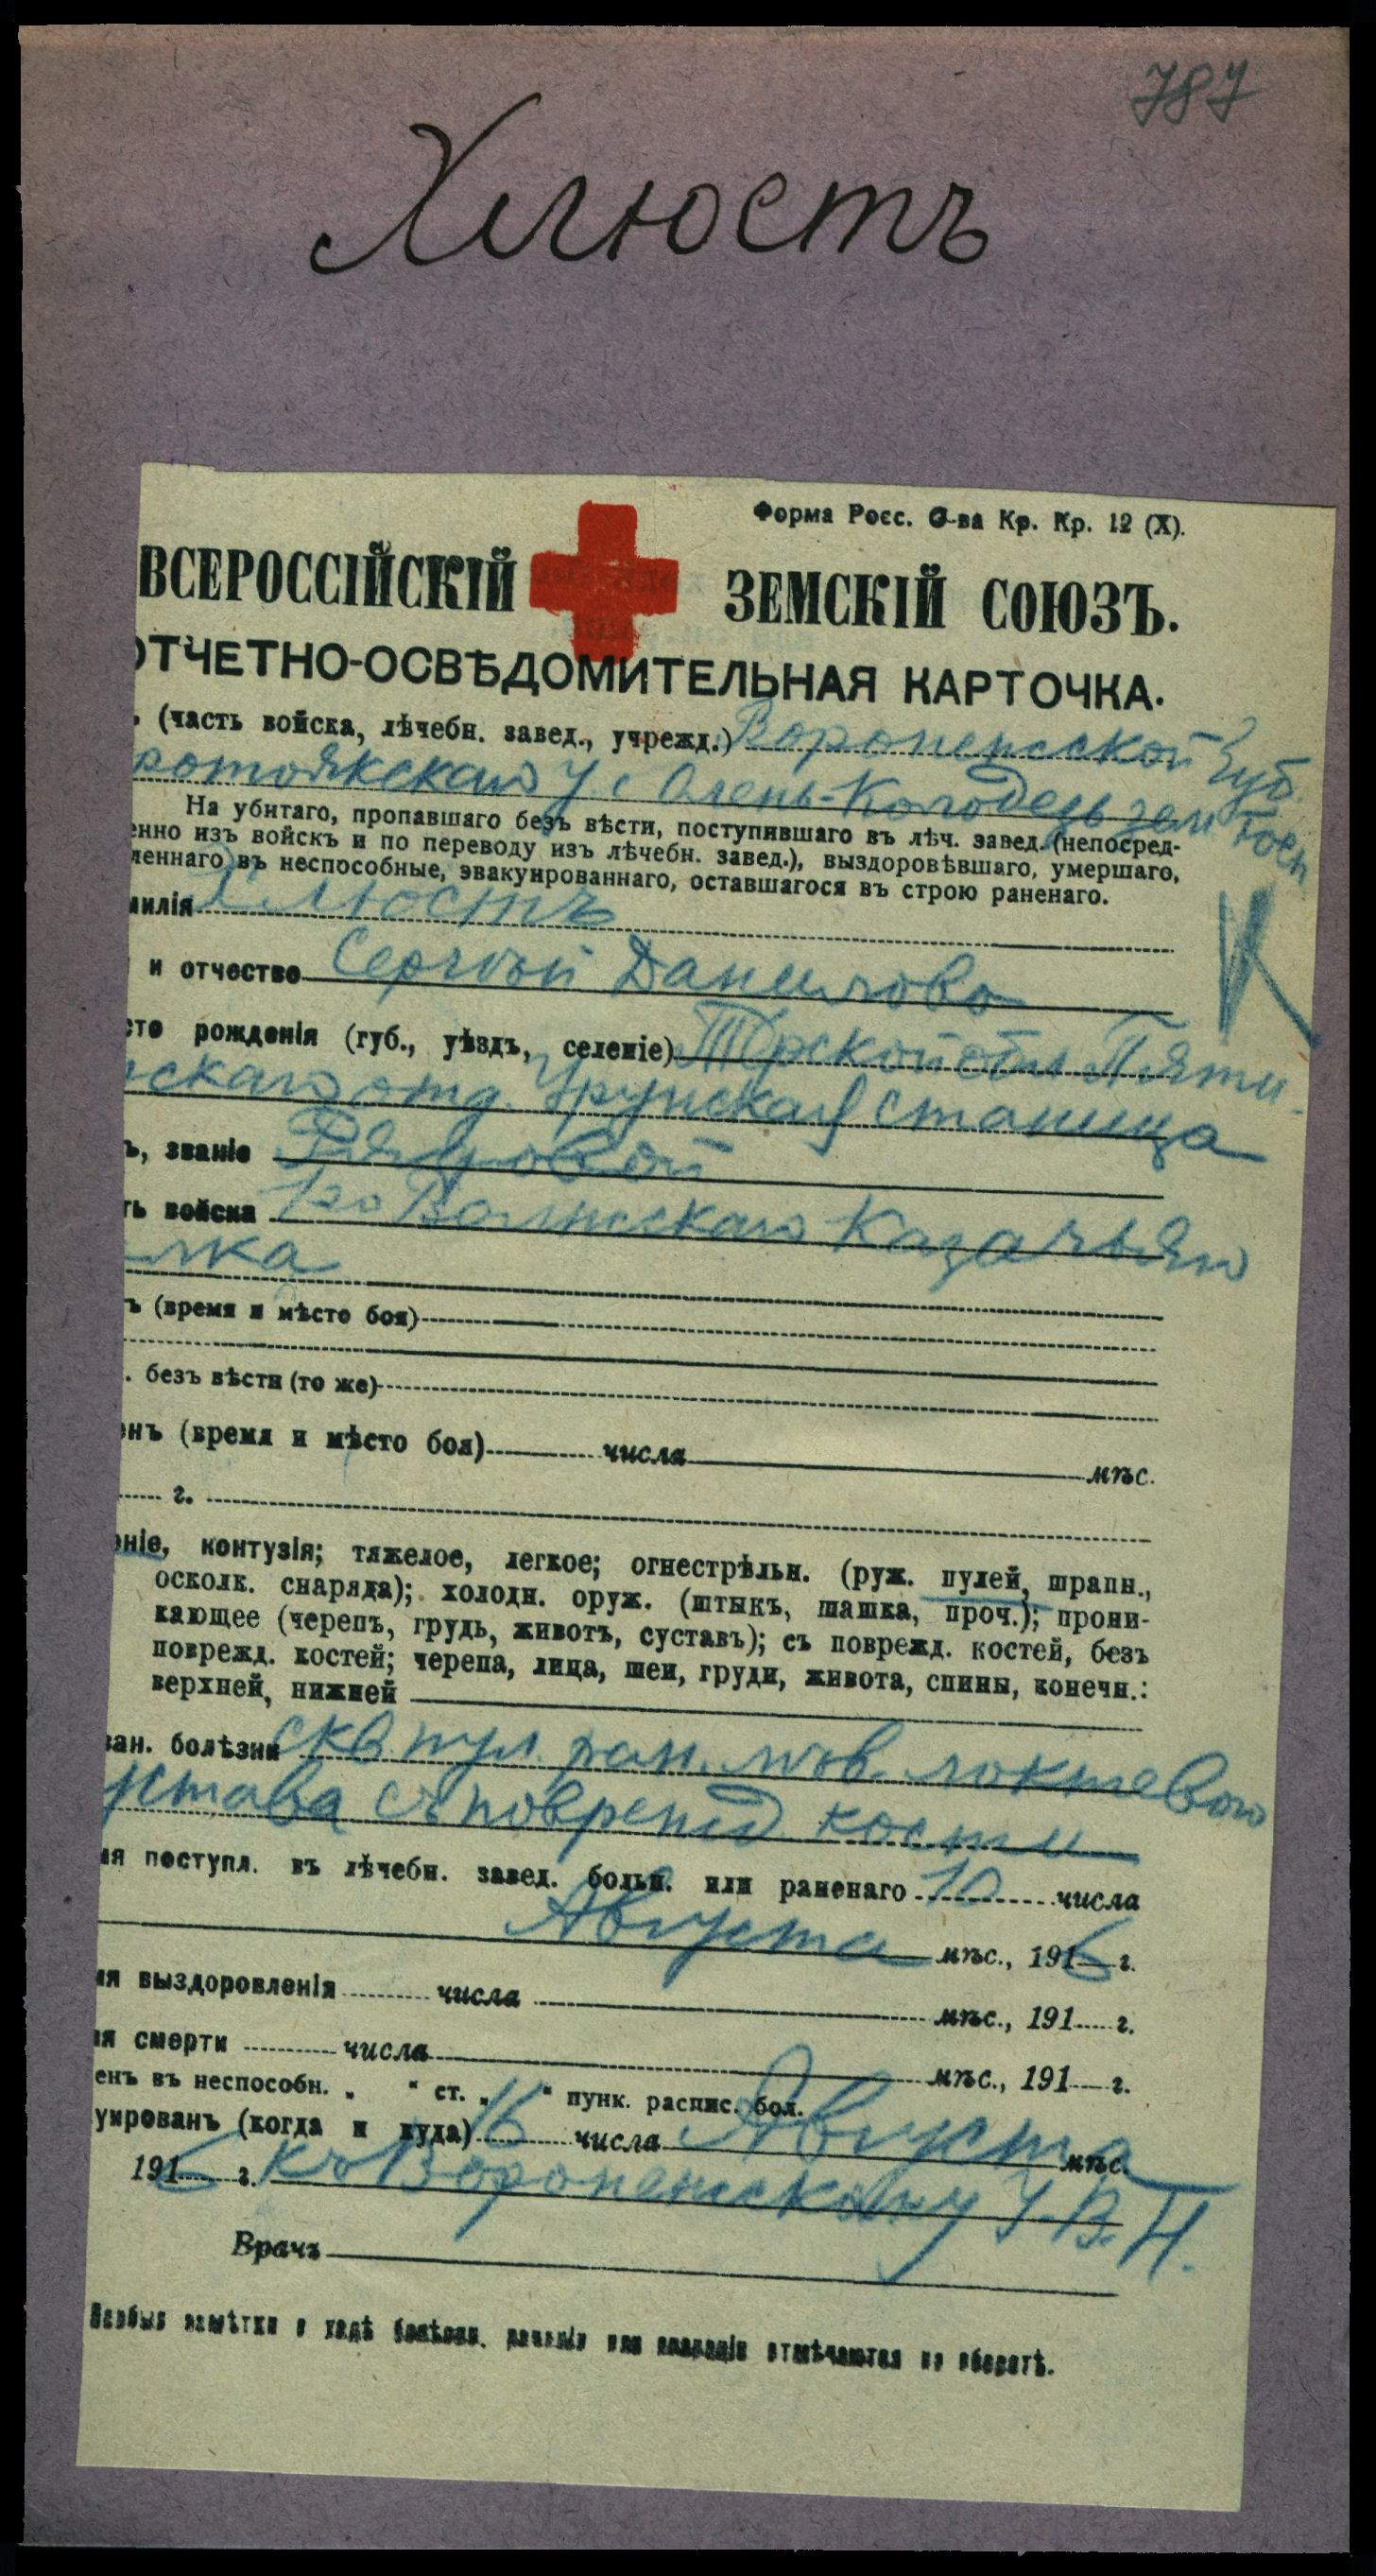 787
Хлюстъ
Форма Росс. О-ва Кр. Кр. 12 (X).
ВСЕРОССІЙСКІЙ ЗЕМСКІЙ СОЮЗЪ.
ОТЧЕТНО-ОСВѢДОМИТЕЛЬНАЯ КАРТОЧКА.
ъ (часть войска, лѣчебн. завед., учрежд.) Воронежской Губ.
ротоякскаго У. с Олень-Колодезь зем Госп.
На убитаго, пропавшаго безъ вѣсти, поступившаго въ лѣч. завед. (непосред-
енно изъ войскъ и по переводу изъ лѣчебн. завед.), выздоровѣвшаго, умершаго,
леннаго въ неспособные, эвакуированнаго, оставшагося въ строю раненаго.
милія Хлюстъ
и отчество Сергѣй Данилово
К
сто рожденія (губ., уѣздъ, селеніе) Трской обл Пяти-
нскаго отд. Урупская Станица
ъ, званіе Рядовой
ть войска 1го Волжскаго Казачьяго
лка
ъ (время и мѣсто боя)
. безъ вѣсти (то же)
енъ (время и мѣсто боя) числа мѣс.
г.
еніе, контузія; тяжелое, легкое; огнестрѣльн. (руж. пулей, шрапн.,
осколк. снаряда); холодн. оруж. (штыкъ, шашка, проч.); прони-
кающее (черепъ, грудь, животъ, суставъ); съ поврежд. костей, безъ
поврежд. костей; черепа, лица, шеи, груди, живота, спины, конечн.:
верхней, нижней
ван. болѣзни скв. пул. ран. лѣв. локтевого
устава съ поврежд кости
мя поступл. въ лѣчебн. завед. больн. или раненаго 10 числа
Августа мѣс., 1916 г.
мя выздоровленія числа мѣс., 191 г.
мя смерти числа мѣс., 191 г.
енъ въ неспособн. „ “ ст. „ “ пунк. распис. бол.
уированъ (когда и куда) 16 числа Августа мѣс.
1916 г. къ Воронежскому У. В. Н.
Врачъ
Особыя замѣтки о ходѣ болѣзни, леченія или операціи отмѣчаются на оборотѣ.